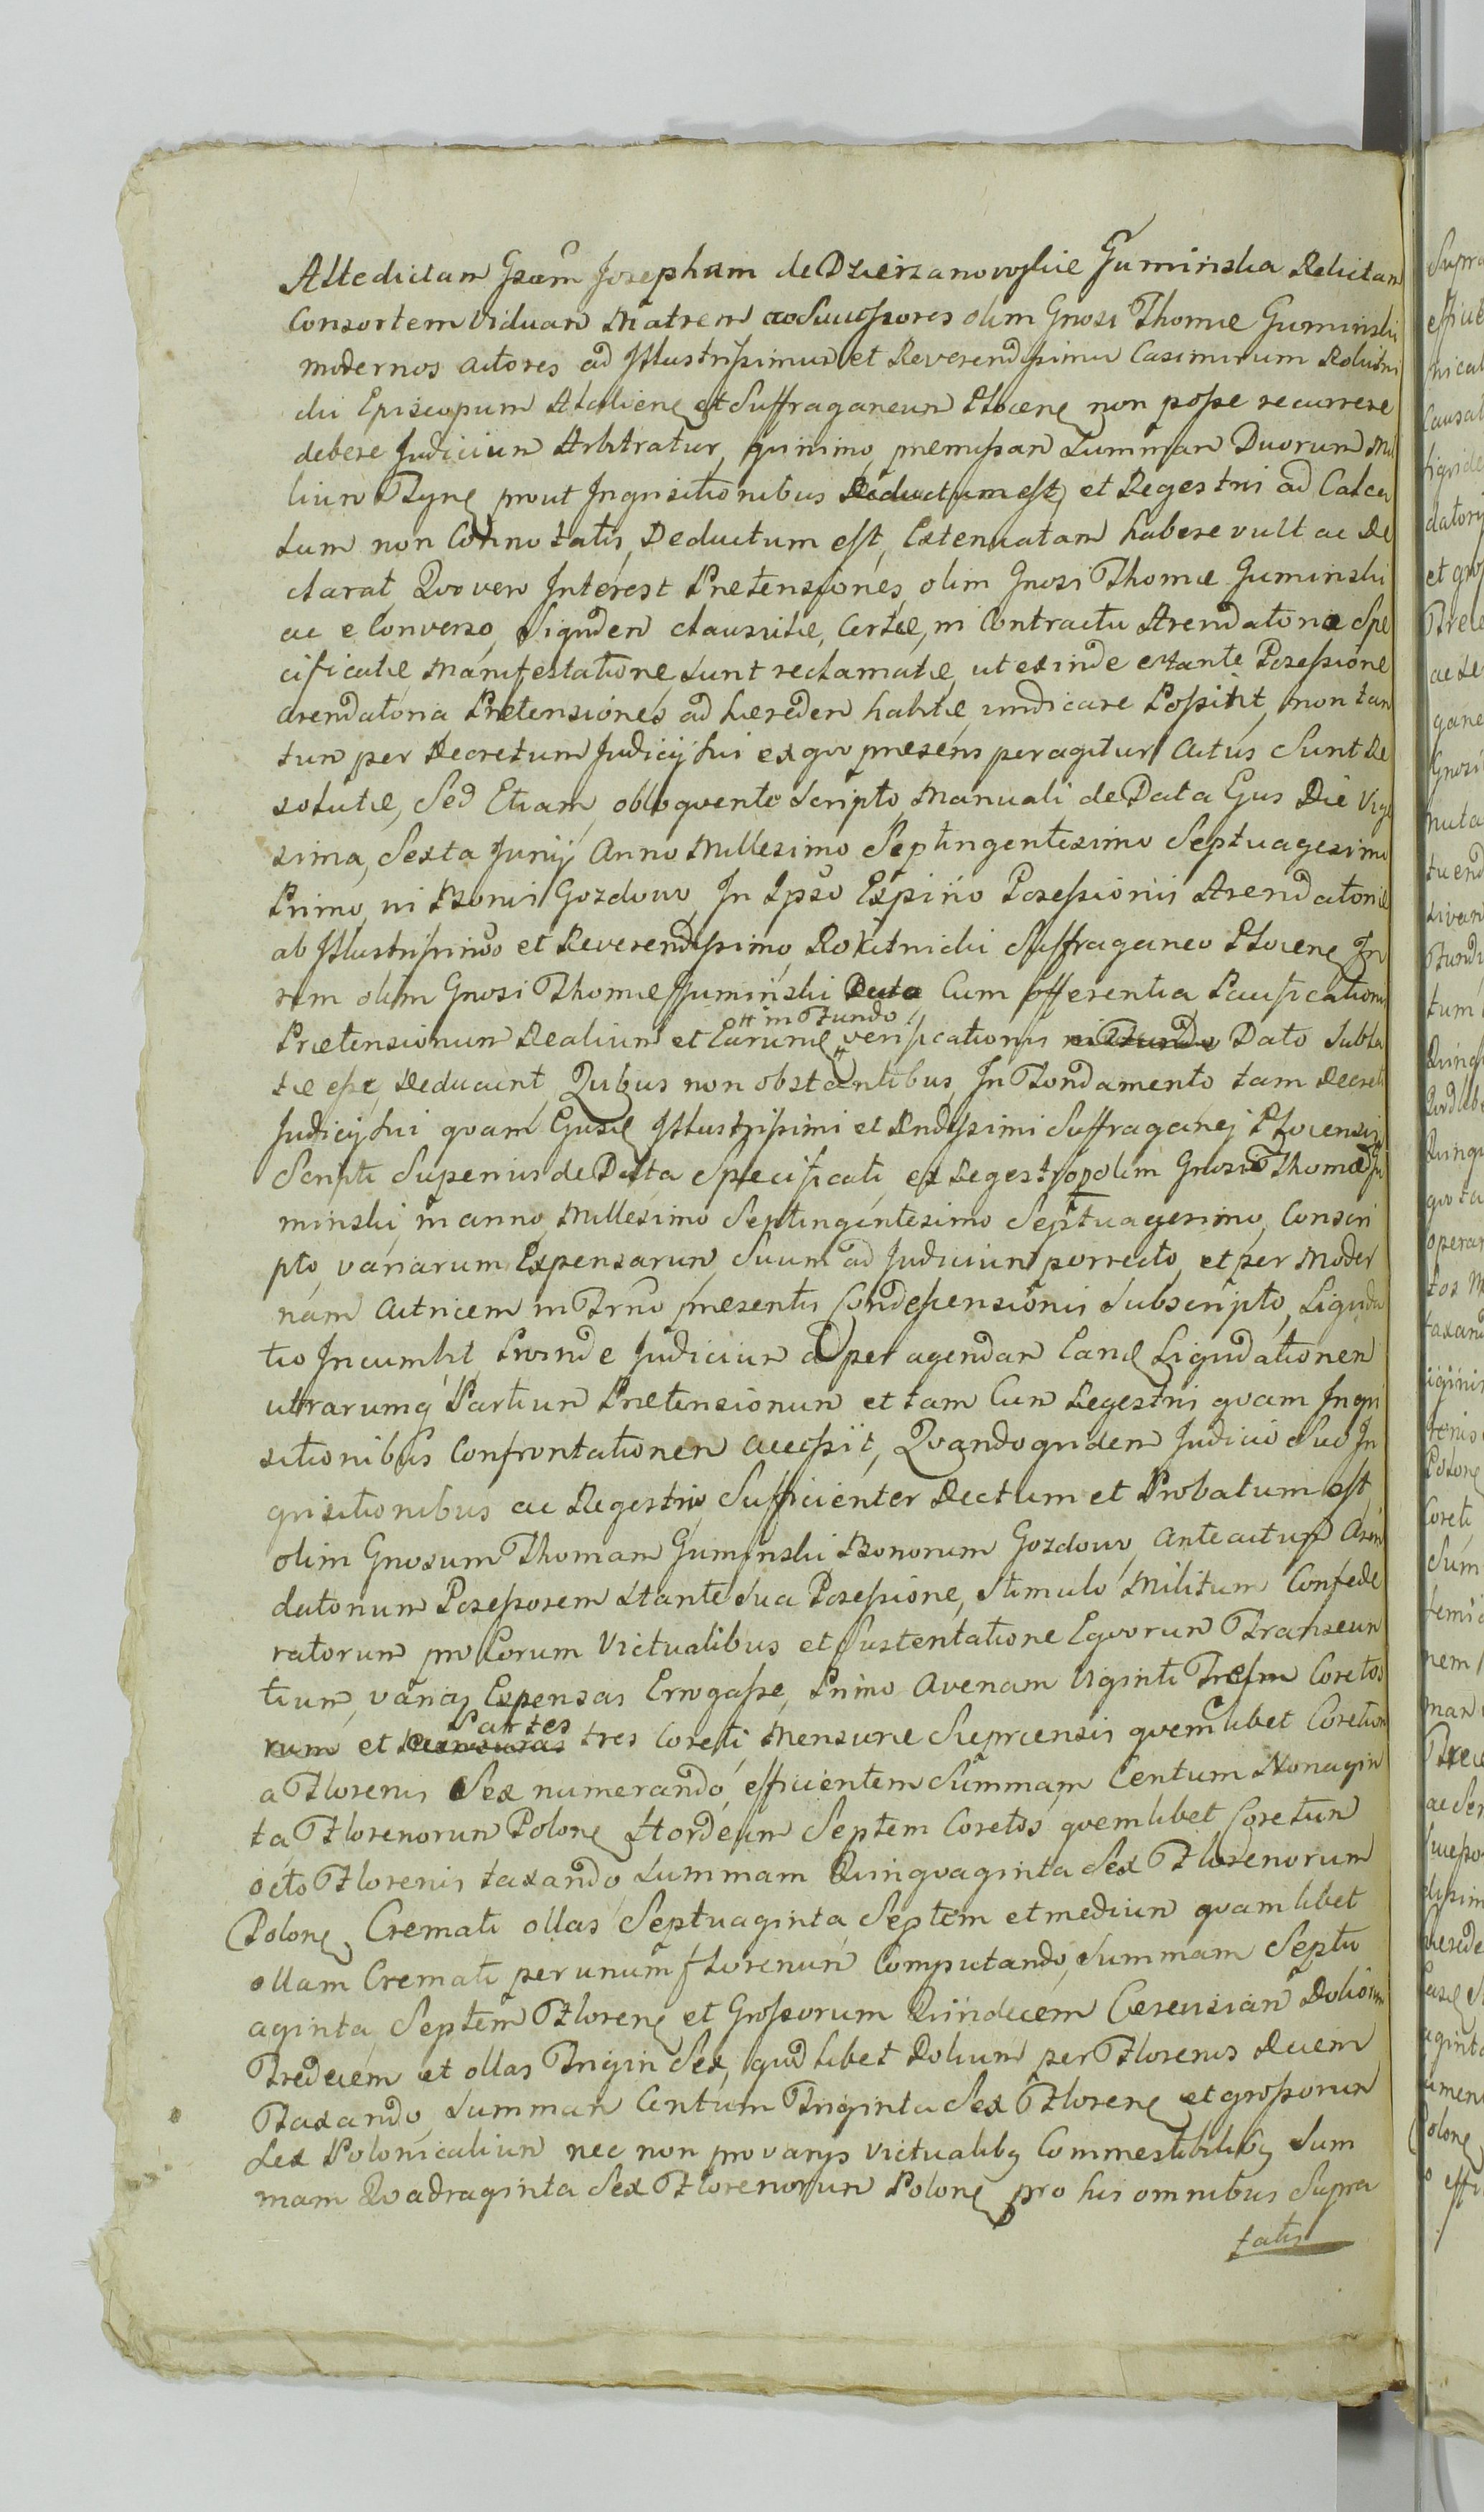 Attedictam Gsam Josepham de Dzierzanowskie Guminska Relictam
Consortem Viduam Matrem ac Successores olim Gnosi Thomæ Guminski
modernos actores ad Illustrissimum et Reverendissimu Casimirum Rokitni
cki Episcopum Atalienę et Suffraganeum Płocenę non posse recurrere
debere Judicium Arbitratur, quinimo, præmissam Summam Duorum Mil
lium Tynę prout Inquisitionibus Deductum est, et Regestri ad Calcu
lum non Connotatis, Deductum est, Extenuatam habere vult ac De
clarat, Quo vero Interest Prætensiones, olim Gnosi Thomæ Guminski
ac e Converso, Siquidem clausulæ, Certæ, in Contractu Arendatorio Spe
cificatæ, Manifestatione, sunt reclamatæ, ut exinde extante Possessione
arendatoria Prætensiones ad hæredem habitæ, indicare Possint, non tan
tum per Decretum Judicij sui ex quo præsens peragitur Actus Sunt Re
solutæ, Sed Etiam, obloquente Scripto, Manuali de Data Ejus Die Vige
sima, Sexta Junij Anno Millesimo Septingentesimo Septuagesimo
Primo, in Bonis Gozdowo, In Ipso Expiro Possessionis Arendatoriæ
ab Illustrissimo et Reverendissimo, Rokitnicki Suffraganeo Płocenę In
rem olim Gnosi Thomæ Guminski Data Cum offerentia Paussicationis
Prætensionum Realium et Earumę # in Fundo verificationis in Fundo Dato Subla
tæ esse, Deducunt, Quibus non obstantibus, In Fondamento tam Decreti
Judicij sui quam Ejusdę Illustrissimi et Rndissimi Suffraganej Płocensis
Scripti Superius de Data Specificati, et Regestro p olim Gnosu Thomæ Gu
minski, in anno, Millesimo Septingentesimo Septuagesimo, Conscri
pto, variarum Expensarum, Suum ad Judicium porrecto, et per Moder
nam Actricem in Trno præsentis Condescensionis Subscripto, Liquida
tio Incumbit, Proinde Judicium ad peragendam Eandę Liquidationem
utrarumq Partium Prætensionum et tam Cum Regestris quam Inqui
sitionibus Confrontationem accessit, Quandoquidem Judicio Suo In
quisitionibus ac Regestris, Sufficienter Dectum et Probatum est,
olim Gnosum Thomam Guminski Bonorum Gozdowo, Anteactum Aren
datorium Possessorem Stante Sua Possessione, Stimulo Militum Confede
ratorum pro Eorum Victualibus et Sustentatione Equorum Transeun
tium, varias Expensas Errogasse, Primo Avenam Viginti Coretos
rum et Partes tres Coreti, Mensuræ Sieprcensis quemlibet Coretum
a Florenis Sex numerando, efficientem Summam Centum Nonagin
ta Florenorum Polonę Hordeum Septem Coretos quemlibet Coretum
octo Florenis taxando Summam Quinquaginta Sex Florenorum
Polonę Cremati ollas Septuaginta Septem et medium quamlibet
ollam Cremati per unum florenum Computando, Summam Septu
aginta Septem Florenę et Grossorum Quindecem Cerevisiam Doliorum
Tredecem et ollas Trigin Sex, quod libet Dolium per Florenis Decem
Taxando, Summam Centum Triginta Sex Florenę et grossorum
Sex Polonicalium nec non pro varijs victualibq Commestibilibq Sum
mam Quadraginta Sex Florenorum Polonę pro his omnibus Supra
tatis